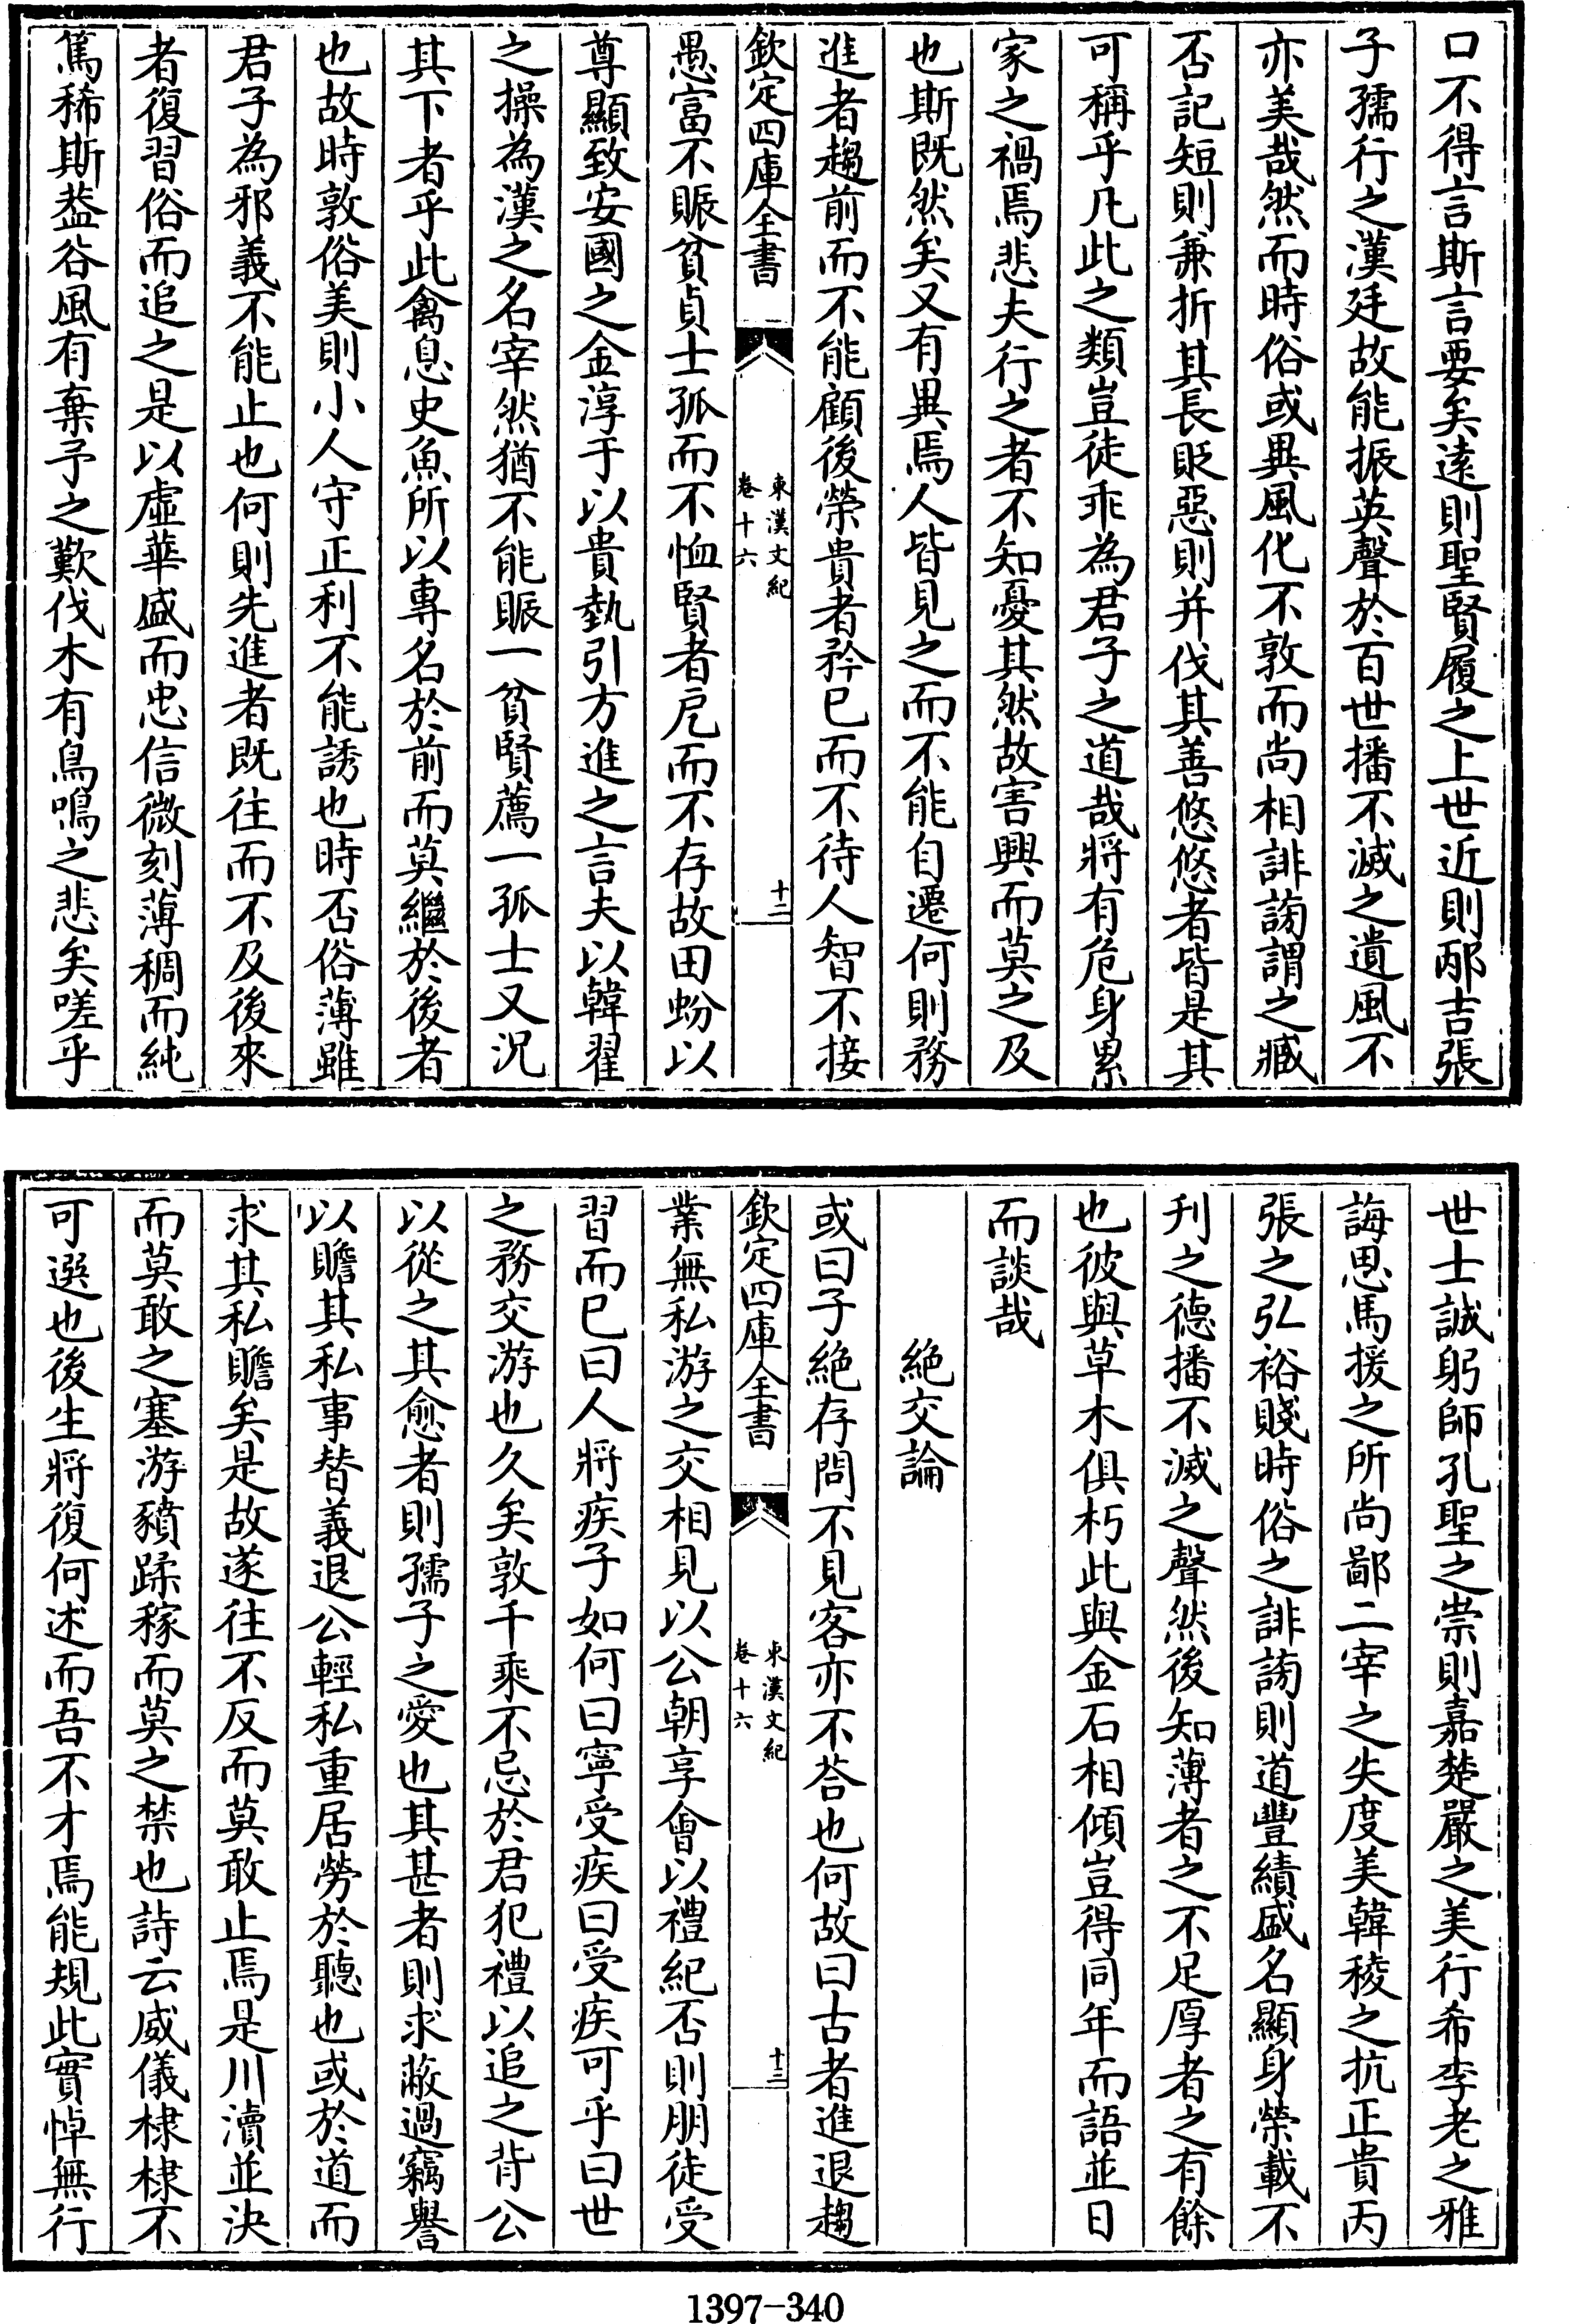 口不得言斯言要矣遠則聖賢履之上世近則邴吉張
子孺行之漢廷故能振英聲於百世播不滅之遺風不
亦美哉然而時俗或異風化不敦而尚相誹謗謂之臧
否記短則兼折其長貶惡則并伐其善悠悠者皆是其
可稱乎凡此之類豈徒乖為君子之道哉將有危身累
家之禍焉悲夫行之者不知憂其然故害興而莫之及
也斯既然矣又有異焉人皆見之而不能自遷何則務
進者趨前而不能顧後榮貴者矜已而不待人智不接
欽定四庫全書
東漢文紀
卷十六
十二
愚富不賑貧貞士孤而不恤賢者戹而不存故田蚡以
尊顯致安國之金淳于以貴埶引方進之言夫以韓翟
之操為漢之名宰然猶不能賑一貧賢薦一孤士又況
其下者乎此禽息史魚所以專名於前而莫繼於後者
也故時敦俗美則小人守正利不能誘也時否俗薄雖
君子為邪義不能止也何則先進者既往而不及後來
者復習俗而追之是以虛華盛而忠信微刻薄稠而純
篤稀斯葢谷風有棄予之歎伐木有鳥鳴之悲矣嗟乎
世士誠躬師孔聖之崇則嘉楚嚴之美行希李老之雅
誨思馬援之所尚鄙二宰之失度美韓稜之抗正貴丙
張之弘裕賤時俗之誹謗則道豐績盛名顯身榮載不
刋之德播不滅之聲然後知薄者之不足厚者之有餘
也彼與草木俱朽此與金石相傾豈得同年而語並日
而談哉
絶交論
或曰子絶存問不見客亦不荅也何故曰古者進退趨
欽定四庫全書
東漢文紀
卷十六
十三
業無私游之交相見以公朝享會以禮紀否則朋徒受
習而已曰人將疾子如何曰寧受疾曰受疾可乎曰世
之務交游也久矣敦千乘不忌於君犯禮以追之背公
以從之其愈者則孺子之愛也其甚者則求蔽過竊譽
以贍其私事替義退公輕私重居勞於聽也或於道而
求其私贍矣是故遂往不反而莫敢止焉是川瀆並決
而莫敢之塞游豶蹂稼而莫之禁也詩云威儀棣棣不
可選也後生將復何述而吾不才焉能規此實悼無行
1397-340